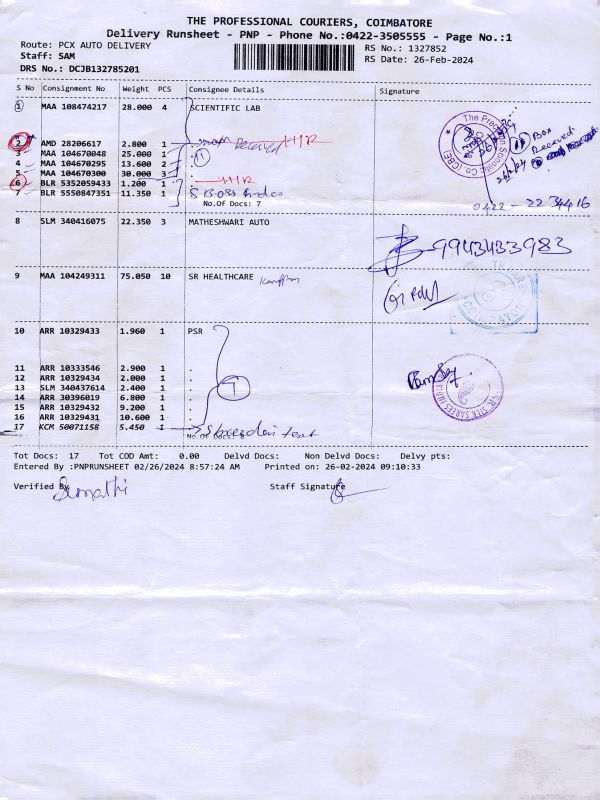 THE PROFESSIONAL COURIERS, COIMBATORE
Delivery Runsheet - PNP - Phone No.:0422-3505555 - Page No.:1
Route: PCX AUTO DELIVERY RS No.: 1327852
Staff: SAM RS Date: 26-Feb-2024
DRS No.: DCJB132785201
S No Consignment No Weight PCS Consignee Details Signature
1 MAA 108474217 28.000 4 SCIENTIFIC LAB
2 AMD 28206617 2.800 1 . Received HR
3 MAA 104670048 25.000 1 .
4 MAA 104670295 13.600 2 . 11
5 MAA 104670300 30.000 3 .
6 BLR 5352059433 1.200 1 . HR
7 BLR 5550847351 11.350 1 .
No.Of Docs: 7
The Precision Scientific Co. (CBE)
11 Box
Received
0422 - 2234416
8 SLM 340416075 22.350 3 MATHESHWARI AUTO
9943433983
9 MAA 104249311 75.050 10 SR HEALTHCARE
10 ARR 10329433 1.960 1 PSR
11 ARR 10333546 2.900 1 .
12 ARR 10329434 2.000 1 .
13 SLM 340437614 2.400 1 .
14 ARR 30396019 6.800 1 .
15 ARR 10329432 9.200 1 .
16 ARR 10329431 10.600 1 .
17 KCM 50071158 5.450 1
No.Of Docs: 8
Tot Docs: 17 Tot COD Amt: 0.00 Delvd Docs: Non Delvd Docs: Delvy pts:
Entered By :PNPRUNSHEET 02/26/2024 8:57:24 AM Printed on: 26-02-2024 09:10:33
Verified By Staff Signature